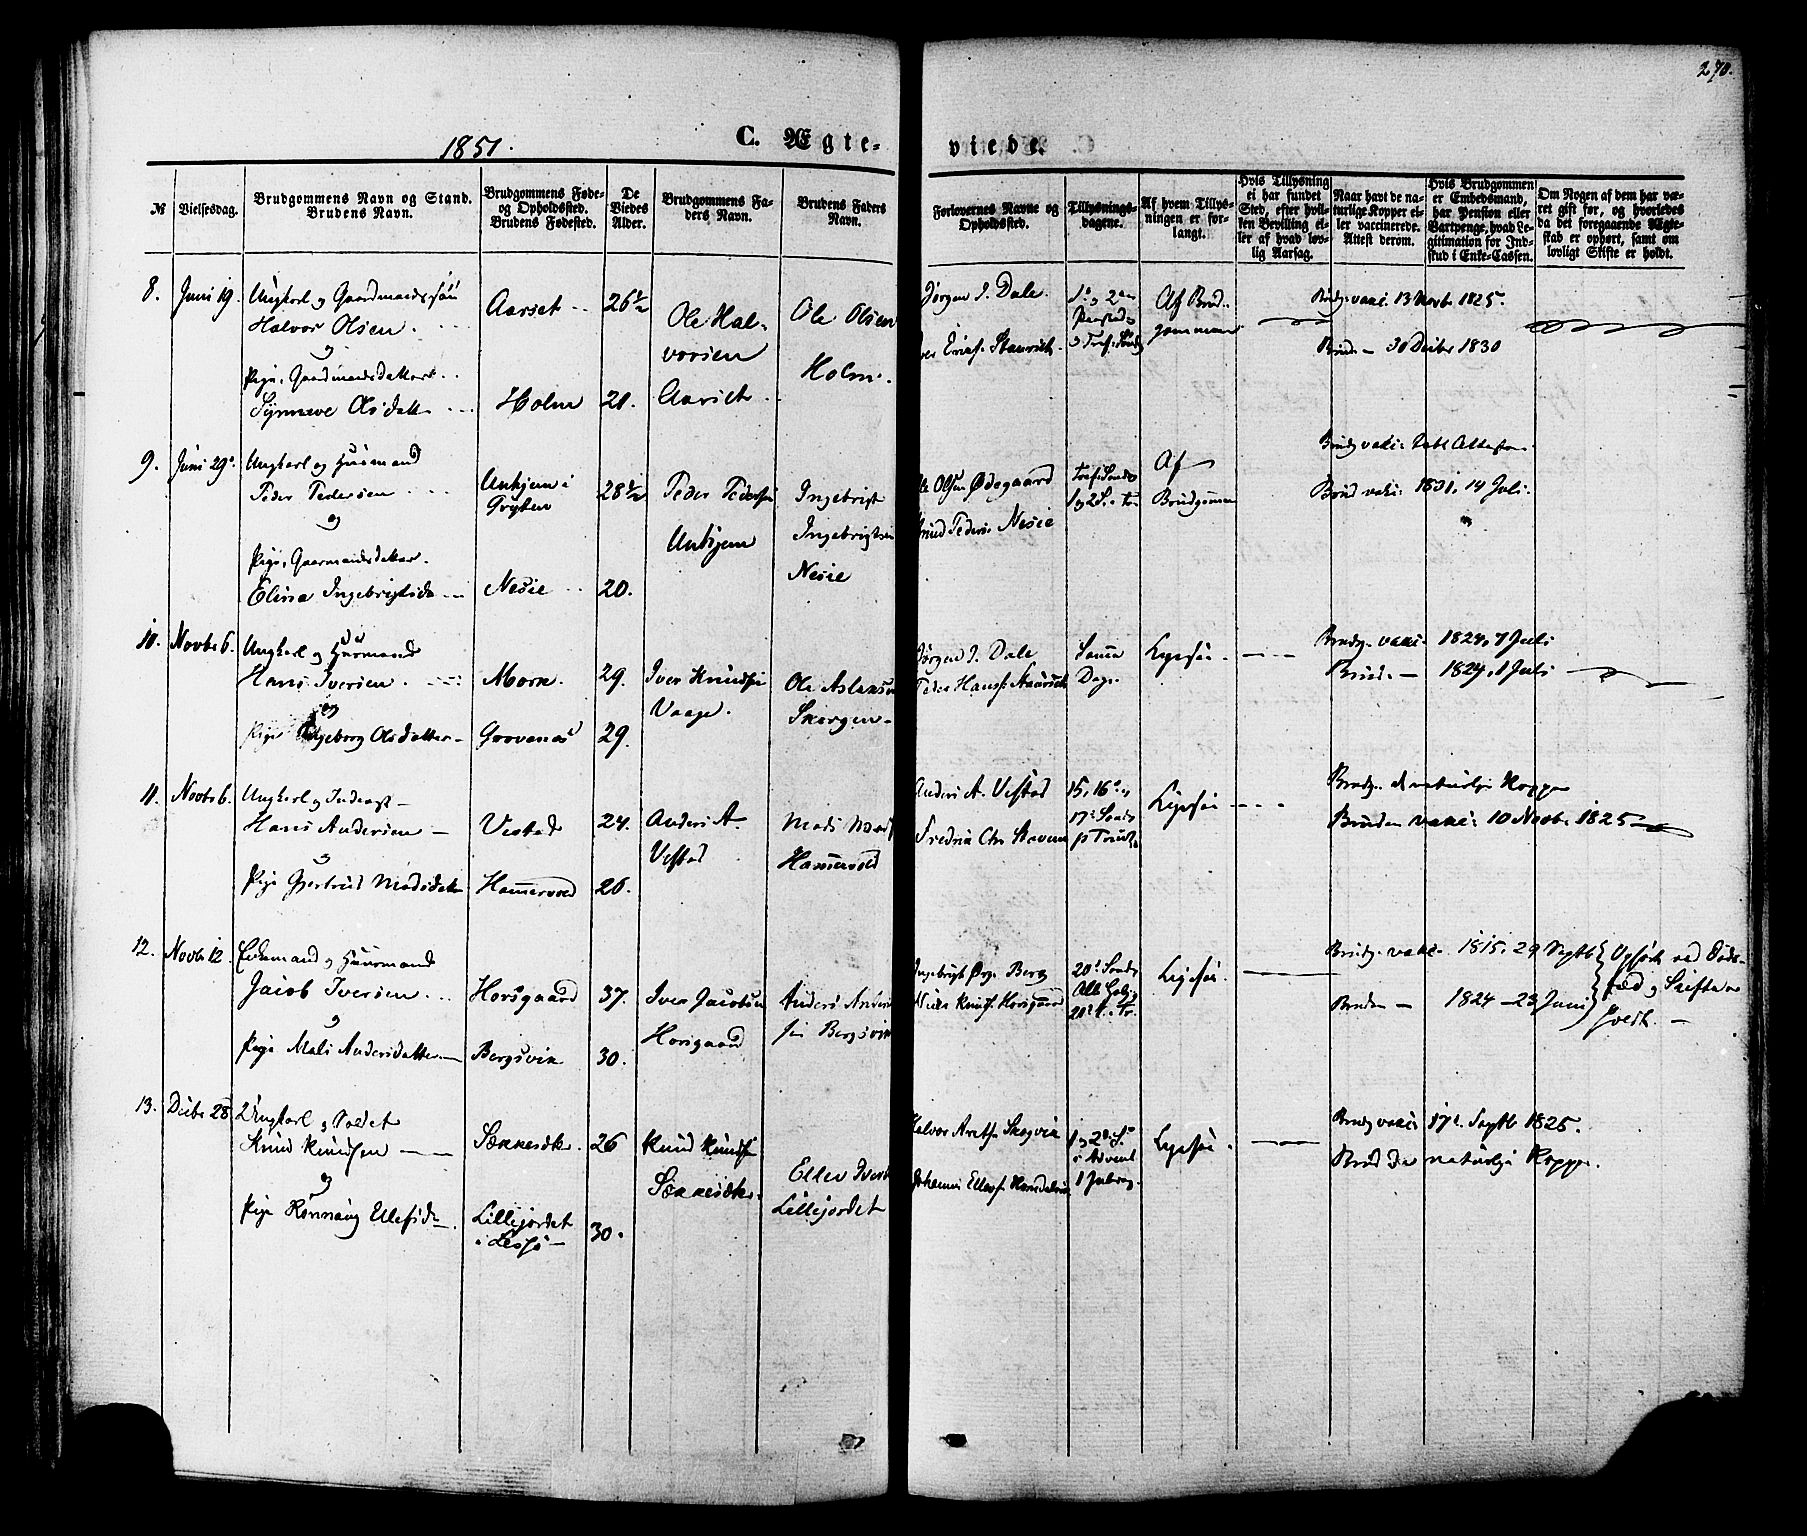 270.
1851.
C. Ægte-
viede.
№
Vielsesdag.
Brudgommens Navn og Stand.
Brudens Navn.
Brudgommens Føde-
og Opholdssted.
Brudens Fødested.
De
Viedes
Alder.
Brudgommens Fa-
ders Navn.
Brudens Faders
Navn.
Forlovernes Navne og
Opholdssted.
Tillysnings-
dagene.
Af hvem Tillys-
ningen er for-
langt.
Hvis Tillysning
ei har fundet
Sted, efter hvil-
ken Bevilling el-
ler af hvad lov-
lig Aarsag.
Naar havt de na-
turlige Kopper el-
ler vaccinerede.
Attest derom.
Hvis Brudgommen
er Embedsmand,
har Pension eller
Vartpenge, hvad Le-
gitimation for Ind-
skud i Enke-Cassen.
Om Nogen af dem har væ-
ret gift før, og hvorledes
da det foregaaende Ægte-
skab er ophørt, samt om
lovligt Skifte er holdt.
8. Juni 19.
Ungkarl og Gaardmandssøn
Halvor Olsen
og
Pige, Gaardmandsdatter
Synneve Olsdatt
Aarset
Holm
26½
21.
Ole Hal-
vorsen
Aarset
Ole Olsen
Holm.
Jørgen J. Dale.
Af Brud-
gommen
Brudg. vakc. 13 Novb 1825.
Brud – 30 Decbr 1830
9. Juni 29.
Ungkarl og Huusmand
Peder Pedersen
og
Pige, Gaarmandsdatter.
Elina Ingebrigtsd
Unhjem i
Grytten
Nesie
28½
20.
Peder Peders
Unhjem
Ingebrigt
Ingebrigtsen
Nesie
Ole Olsen Ødegaard
Knud Peders. Nesie
Af
Brudgommen
Brudg vakc.
Brud vakc. 1831, 14 Juli.
10. Novbr 6.
Ungkarl og Huusmand
Hans Iversen
og
Pige Ingeborg Olsdatter
Mork.
Grovenæs
29.
29.
Iver Knuds
Vaage.
Ole Aslaksen
Skorgen
Jørgen J. Dale
Peder Hans.
Samme
Dage
Ligesaa
Brudg. vakc. 1824, 1 Juli
Brud – 1824, 1 Juli
11. Novbr 6.
Ungkarl og Inderst
Hans Andersen
og
Pige Gjertrud Madsdatt
Vestad
Hammervold
24.
26.
Anders A.
Vestad
Mads
Hammervold
Anders A. Vestad
Fredrik Chr Staven
15, 16 og
17 Sønd
p Trinit.
Ligesaa
Brudg. d naturlige Kopper
Bruden vakc: 10 Novb. 1825
12. Novb 12.
Enkemand og Huusmand
Jacob Iversen
og
Pige Mali Andersdatter
Horsgaard
Bergsvik
37.
30.
Iver Jacobsen
Horsgaard
Anders Ander
sen Bergsvik
Ingebrigt Berg
Niels Knuts. Horsgaard
20 Sønd
Ligesaa
Brudg. vakc. 1815. 29 Septb
Bruden – 1824 – 23 Juni
Ophørt ved Døds-
fæld og Skifte er
holdt. –
13. Decbr 28
Ungkarl og Soldat
Knud Knudsen
og
Pige Rønnaug Ellefsd
Lillejordet
i Lesje
26
30.
Knud Knuds
Ellev Ivers
Lillejordet
Halvor Skogvik
1 og 2 S.
i Advent
1 Juledag.
Ligesaa.
Brudg vakc 17. Septb 1825.
Brud de naturlige Kopper.